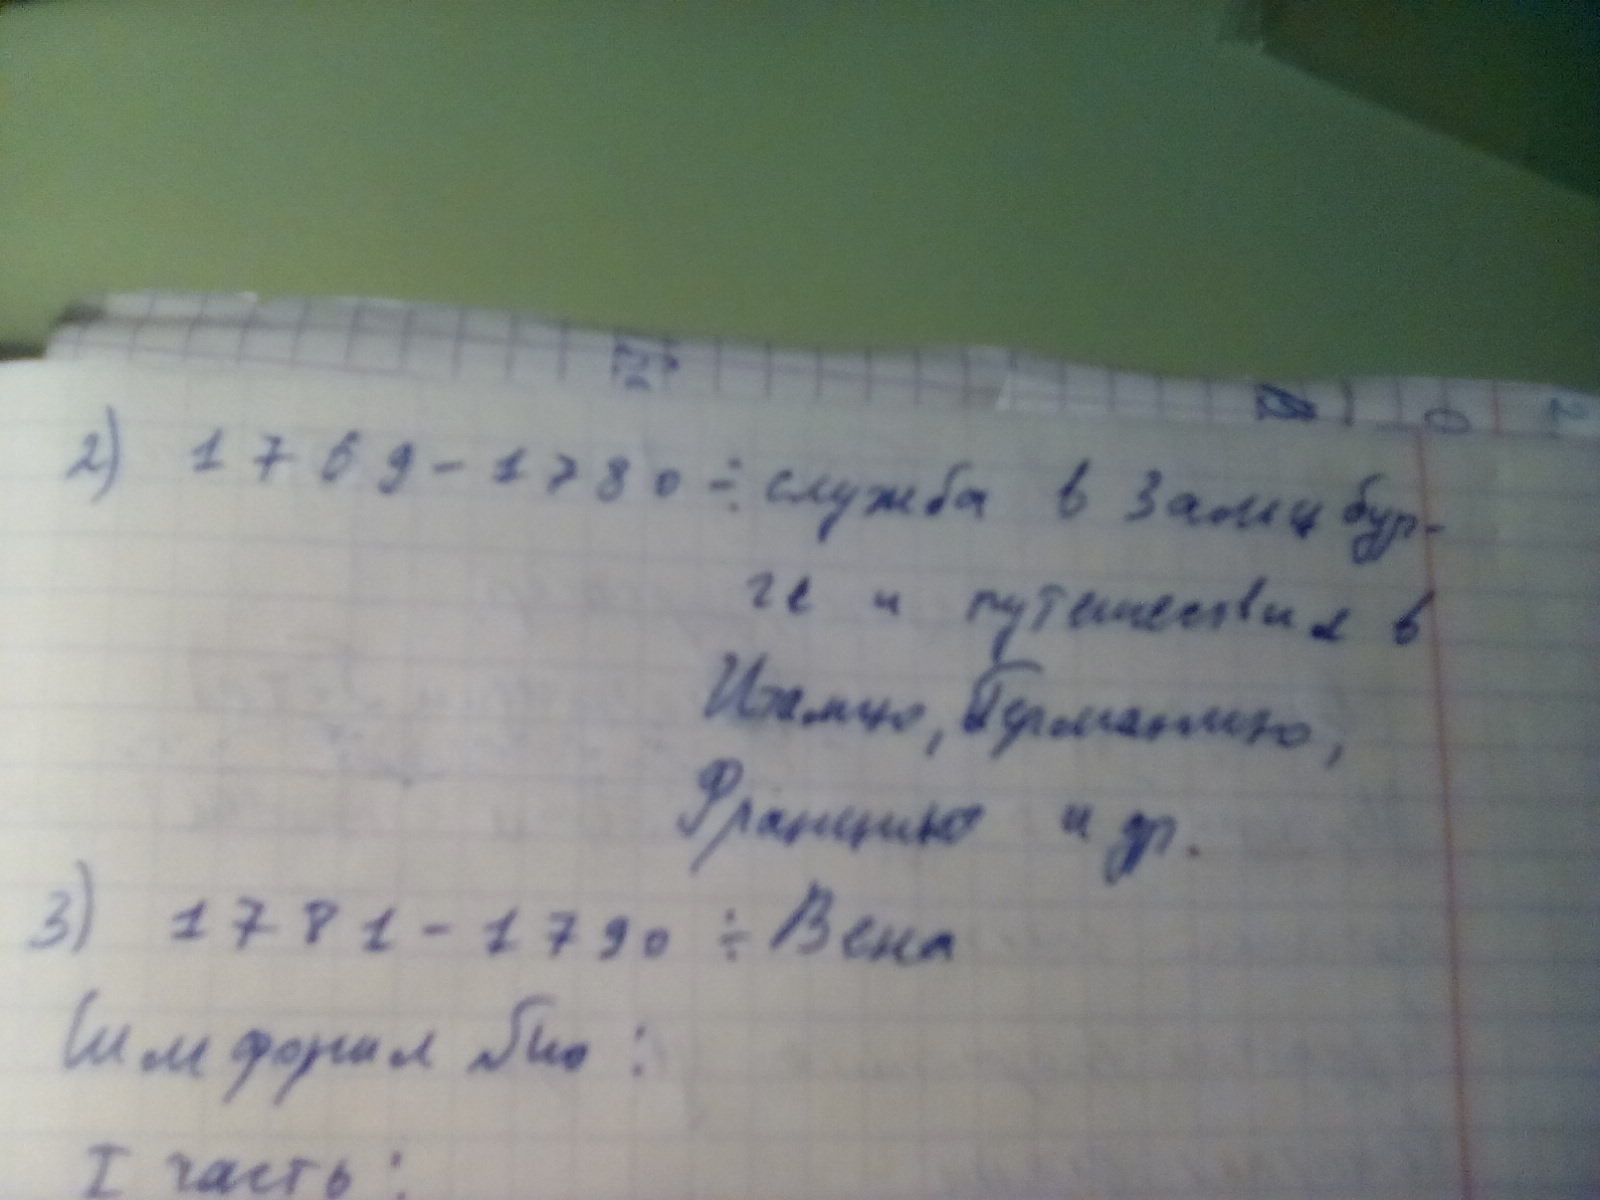 2) 1769-1780 ÷ служба в Залицбур-
ге и путешествия в
Италию, Германию,
Францию и др.
3) 1781-1790 ÷ Вена
Симфония №40:
I часть: